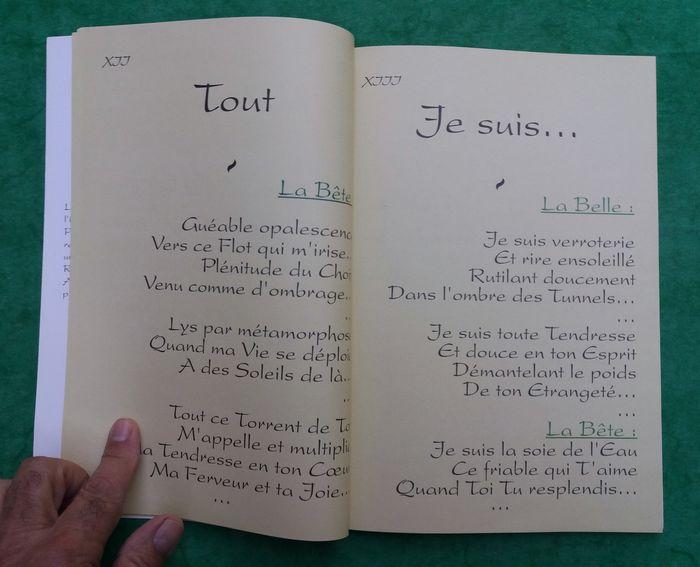 XII
Tout
La Bête
Guéable opalescenc
Vers ce Flot qui m'irise..
Plénitude du Choi
Venu comme d'ombrage..
..
Lys par métamorphos
Quand ma Vie se déploi
A des Soleils de là..
..
Tout ce Torrent de To
M'appelle et multipli
la Tendresse en ton Cœu
Ma Ferveur et ta Joie...
...
XIII
Je suis...
La Belle :
Je suis verroterie
Et rire ensoleillé
Rutilant doucement
Dans l'ombre des Tunnels...
...
Je suis toute Tendresse
Et douce en ton Esprit
Démantelant le poids
De ton Etrangeté...
...
La Bête :
Je suis la soie de l'Eau
Ce friable qui T'aime
Quand Toi Tu resplendis...
...